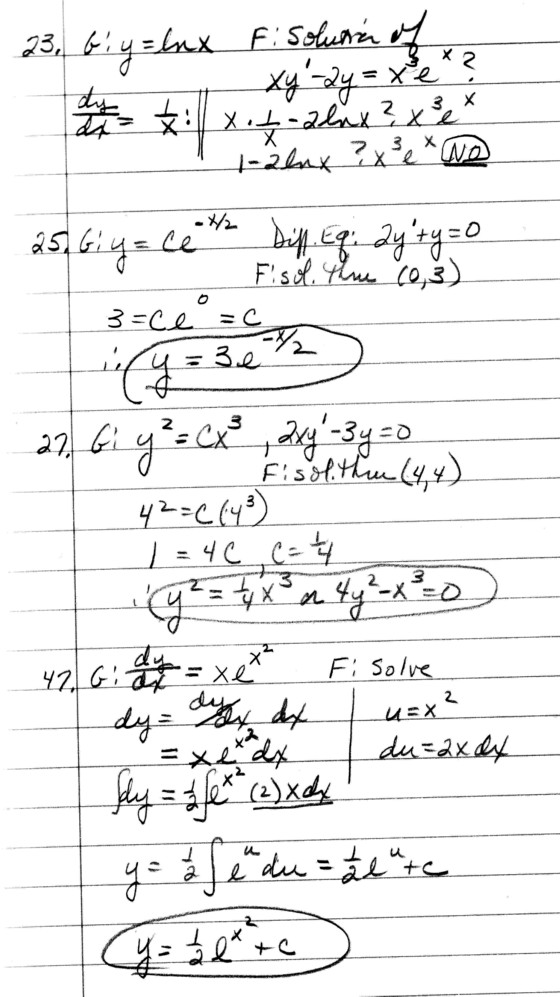 23. G: y = ln x F: Solution of
xy' - 2y = x³e^x ?
dy/dx = 1/x : || x · 1/x - 2 ln x ? x³e^x
1 - 2 ln x ? x³e^x NO
25. G: y = Ce^(-x/2) Diff. Eq: 2y' + y = 0
F: sol. thru (0,3)
3 = Ce⁰ = C
∴ y = 3e^(-x/2)
27. G: y² = Cx³, 2xy' - 3y = 0
F: sol. thru (4,4)
4² = C(4³)
1 = 4C, C = 1/4
∴ y² = 1/4 x³ or 4y² - x³ = 0
47. G: dy/dx = xe^(x²) F: Solve
dy = dy/dx dx | u = x²
= xe^(x²) dx | du = 2x dx
∫dy = 1/2 ∫e^(x²) (2)x dx
y = 1/2 ∫e^u du = 1/2 e^u + c
y = 1/2 e^(x²) + c